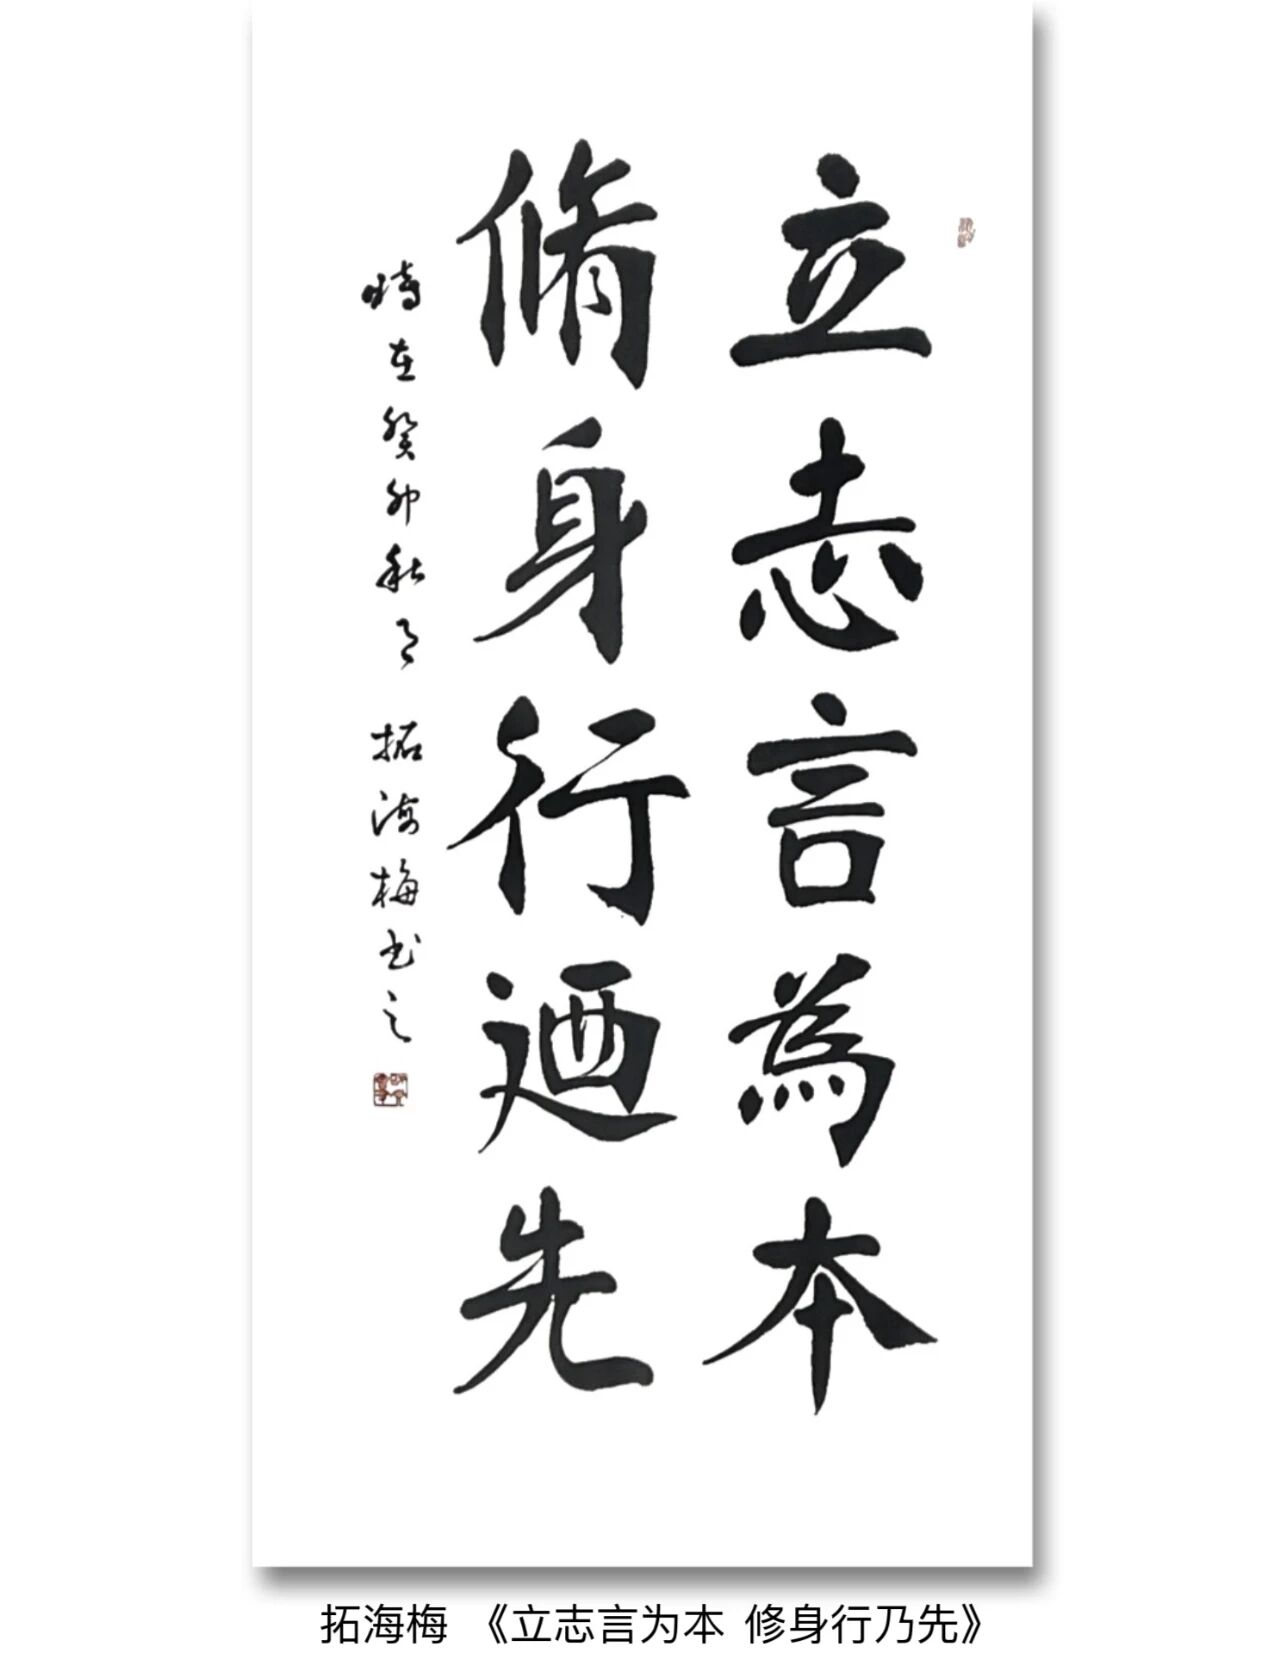 立志言為本
脩身行迺先
時在癸卯秋月 拓海梅书之
拓海梅 《立志言为本 修身行乃先》